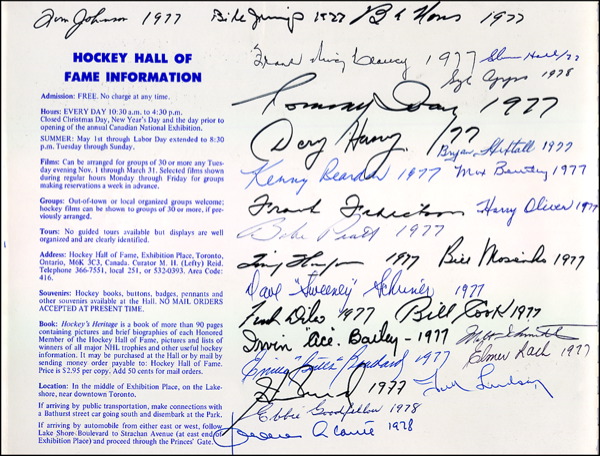 Tom Johnson 1977
1977
1977
HOCKEY HALL OF
FAME INFORMATION
Admission: FREE. No charge at any time.
Hours: EVERY DAY 10:30 a.m. to 4:30 p.m.
Closed Christmas Day, New Year's and the day prior to
opening of the annual Canadian National Exhibition.
SUMMER: May 1st through Labor Day extended to 8:30
p.m. Tuesday through Sunday.
Films: Can be arranged for groups of 30 or more any Tues-
day evening Nov. 1 through March 31. Selected films shown
during regular hours Monday through Friday for groups
making reservations a week in advance.
Groups: Out-of-town or local organized groups welcome;
hockey films can be shown to groups of 30 or more, if pre-
viously arranged.
Tours: No guided tours available but displays are well
organized and are clearly identified.
Address: Hockey Hall of Fame, Exhibition Place, Toronto,
Ontario, M6K 3C3, Canada. Curator M. H. (Lefty) Reid.
Telephone 366-7551, local 251, or 532-0393. Area Code:
416.
Souvenirs: Hockey books, buttons, badges, pennants and
other souvenirs available at the Hall. NO MAIL ORDERS
ACCEPTED AT PRESENT TIME.
Book: Hockey's Heritage is a book of more than 90 pages
containing pictures and brief biographies of each Honored
Member of the Hockey Hall of Fame, pictures and lists of
winners of all major NHL trophies and other useful hockey
information. It may be purchased at the Hall or by mail by
sending money order payable to: Hockey Hall of Fame.
Price is $2.95 per copy. Add 50 cents for mail orders.
Location: In the middle of Exhibition Place, on the Lake-
shore, near downtown Toronto.
If arriving by public transportation, make connections with
a Bathurst street car going south and disembark at the Park.
If arriving by automobile from either east or west, follow
Lake Shore Boulevard to Strachan Avenue (at east end of
Exhibition Place) and proceed through the Princes' Gate.
Frank Clancy 1977
Glenn Hall /77
Syl Apps 1978
Tommy 1977
/77
1977
Kenny Reardon 1977
Max Bentley 1977
Frank Fredrickson
Harry Oliver 1977
Babe Pratt 1977
1977
Bill Mosienko 1977
Dave "Sweeney" Schriner 1977
1977
Bill Cook 1977
Irvin "Ace" Bailey - 1977
Milt Schmidt
Elmer Lach 1977
Emile "Butch" Bouchard 1977
1977
Ted Lindsay
Ebbie Goodfellow 1978
1978